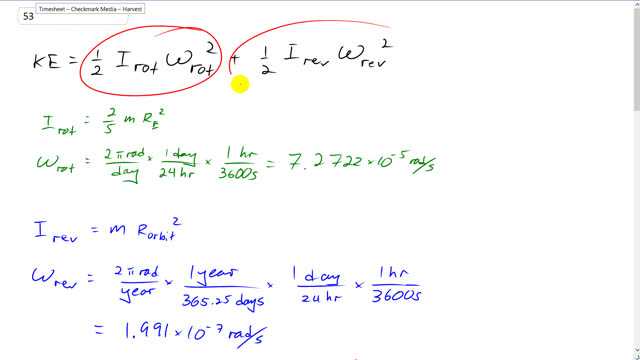 Timesheet – Checkmark Media – Harvest
53
KE = 1/2 I_rot ω_rot² + 1/2 I_rev ω_rev²
I_rot = 2/5 m R_E²
ω_rot = 2π rad/day × 1 day/24 hr × 1 hr/3600s = 7.2722 × 10⁻⁵ rad/s
I_rev = m R_orbit²
ω_rev = 2π rad/year × 1 year/365.25 days × 1 day/24 hr × 1 hr/3600s
= 1.991 × 10⁻⁷ rad/s